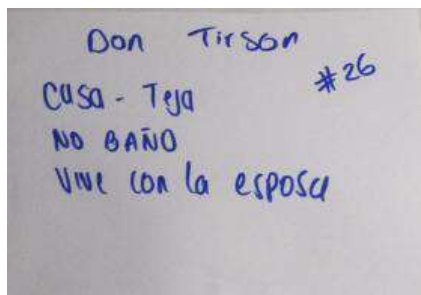 Don Tirson
#26
Casa - Teja
NO BAÑO
Vive con la esposa